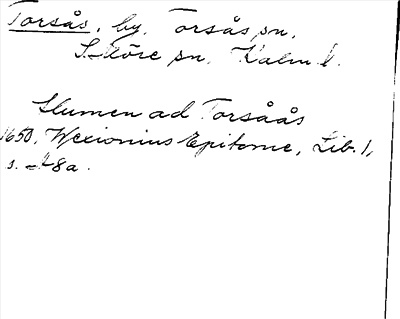 Torsås, by, Torsås sn,
S. Möre sn. Kalm. l.
flumen ad Torsåås
1650, Wexionius Epitome, Lib. 1,
s. 8a.